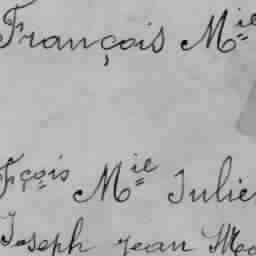 François Mie
Fçois Mie Julie
Joseph Jean Ma